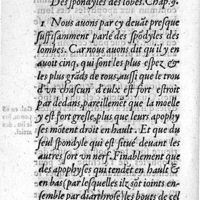 Des spondyles des lobes. Chap. 9.
1. Nous auons par cy deuāt presque
suffisamment parlé des spōdyles des
lombes. Car nous auons dit qu'il y en
auoit cinq, qui sont les plus espez &
les plus grāds de tous, aussi que le trou
d'vn chascun d'eulx est fort estroit
par dedans, pareillemēt que la moelle
y est fort gresle, plus que leurs apophy
ses mōtent droit en hault. Et que du
seul spondyle qui est situé deuant les
autres sort vn nerf. Finablement que
des apophyses qui tendent en hault &
en bas (par lesquelles ilz sōt ioints en-
semble par diarthrose) les bouts de cel